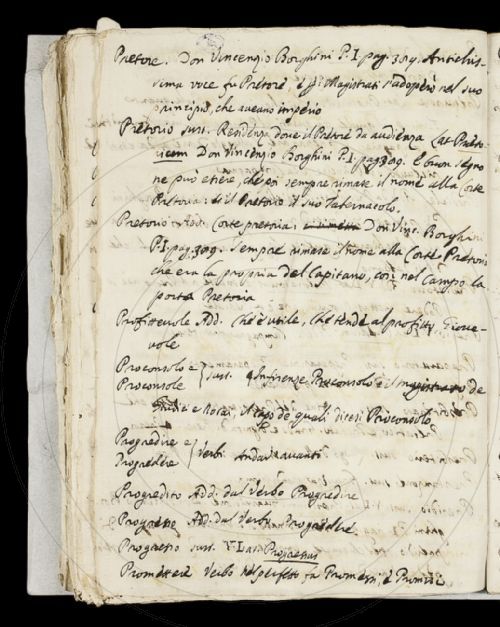 Pretore. Don Vincenzio Borghini P. I pag. 309. Antichis-
sima voce fu Pretore, e si Magistrati s'adoperò nel suo
principio, che aveano imperio
Pretorio sust. Residenza dove il Pretore da audienza Lat. Præto-
rium Don Vincenzio Borghini P. I. pag 309. e buon segno
ne può essere, che poi sempre rimase il nome alla Corte
Pretoria: & il Pretorio il suo Tabernacolo.
Pretorio. Add. Corte pretoria: Don Vinc. Borghini
P. I pag. 309. Sempre rimase il nome alla Corte Pretoria
che era la propria del Capitano, così nel Campo la
porta Pretoria
Profittevole, Add. Che è utile, che tende al profitto Giove-
vole
Proconsolo e
Proconsole } sust. In Firenze Proconsolo è il magistrato de
Giudici e Notai, il capo de quali dicesi Proconsolo
Progredire e
Progredere } Verbi Andare avanti
Progredito Add. dal Verbo Progredire
Progresso Add. dal Verbo Progredere.
Progresso sust. V. L. Progressus
Promettere Verbo nel perfetto fa Promessi, e Promisi